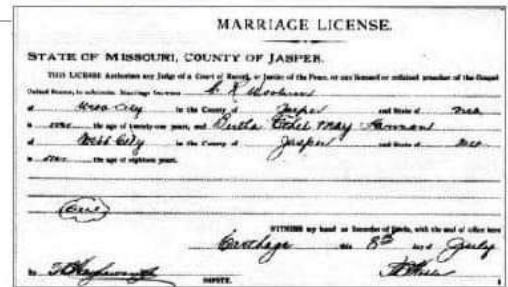 MARRIAGE LICENSE.
STATE OF MISSOURI, COUNTY OF JASPER.
THIS LICENSE Authorizes any Judge of a Court of Record, or Justice of the Peace, or any licensed or ordained preacher of the Gospel
to solemnize Marriage between
of Webb City in the County of Jasper and State of Mo
is over the age of twenty-one years, and Bertha Ethel May
of Webb City in the County of Jasper and State of Mo
is over the age of eighteen years.
WITNESS my hand as Recorder of Deeds, with the seal of office here
Carthage this 8th day of July
By DEPUTY.